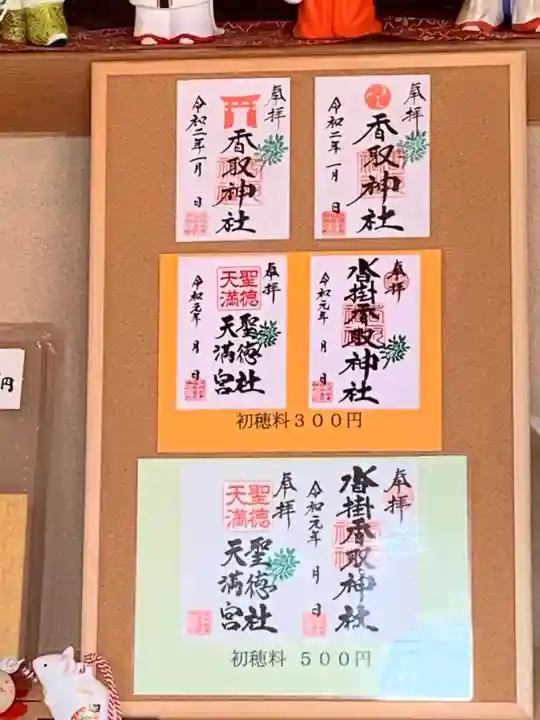 奉拝
香取神社
令和二年一月 日
奉拝
香取神社
令和二年一月 日
奉拝
聖徳天満
聖徳社
天満宮
令和元年 月 日
奉拝
沓掛香取神社
令和元年 月 日
初穂料３００円
奉拝
聖徳天満
聖徳社
天満宮
奉拝
沓掛香取神社
令和元年 月 日
初穂料 ５００円
円